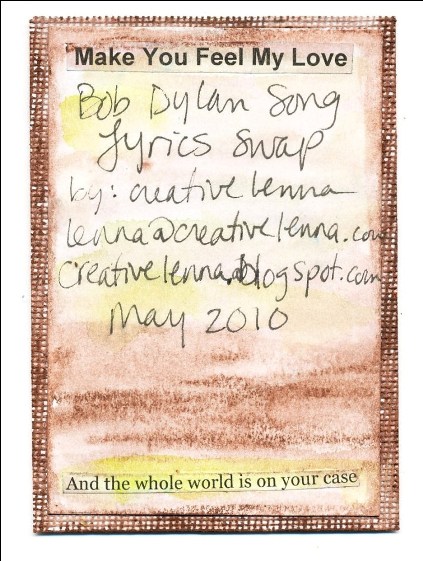 Make You Feel My Love
Bob Dylan Song
Lyrics Swap
by: creativelenna
lenna@creativelenna.com
creativelenna.blogspot.com
May 2010
And the whole world is on your case